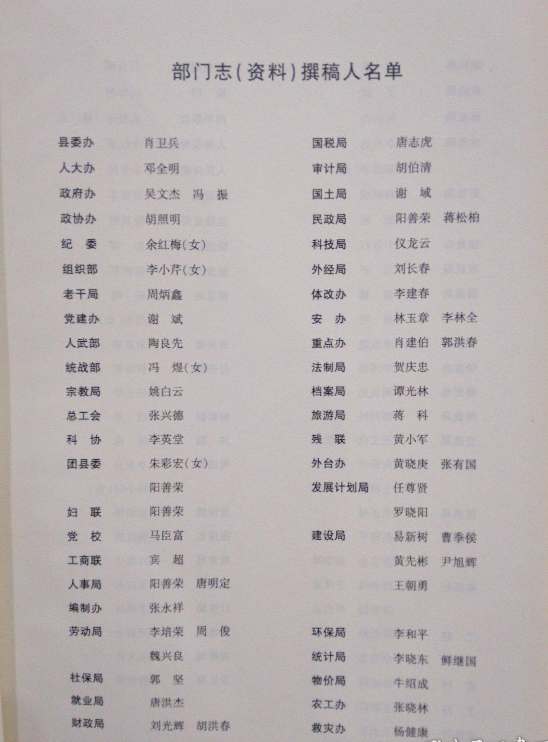 部门志(资料)撰稿人名单
县委办 肖卫兵
人大办 邓全明
政府办 吴文杰 冯 振
政协办 胡照明
纪 委 余红梅(女)
组织部 李小芹(女)
老干局 周炳鑫
党建办 谢 斌
人武部 陶良先
统战部 冯 煜(女)
宗教局 姚白云
总工会 张兴德
科 协 李英堂
团县委 朱彩宏(女)
阳善荣
妇 联 阳善荣
党 校 马臣富
工商联 宾 超
人事局 阳善荣 唐明定
编制办 张永祥
劳动局 李培荣 周 俊
魏兴良
社保局 郭 坚
就业局 唐洪杰
财政局 刘光辉 胡洪春
国税局 唐志虎
审计局 胡伯清
国土局 谢 域
民政局 阳善荣 蒋松柏
科技局 仪龙云
外经局 刘长春
体改办 李建春
安 办 林玉章 李林全
重点办 肖建伯 郭洪春
法制局 贺庆忠
档案局 谭光林
旅游局 蒋 科
残 联 黄小军
外台办 黄晓庚 张有国
发展计划局 任尊贤
罗晓阳
建设局 易新树 曹季侯
黄先彬 尹旭辉
王朝勇
环保局 李和平
统计局 李晓东 鲜继国
物价局 牛绍成
农工办 张晓林
救灾办 杨健康